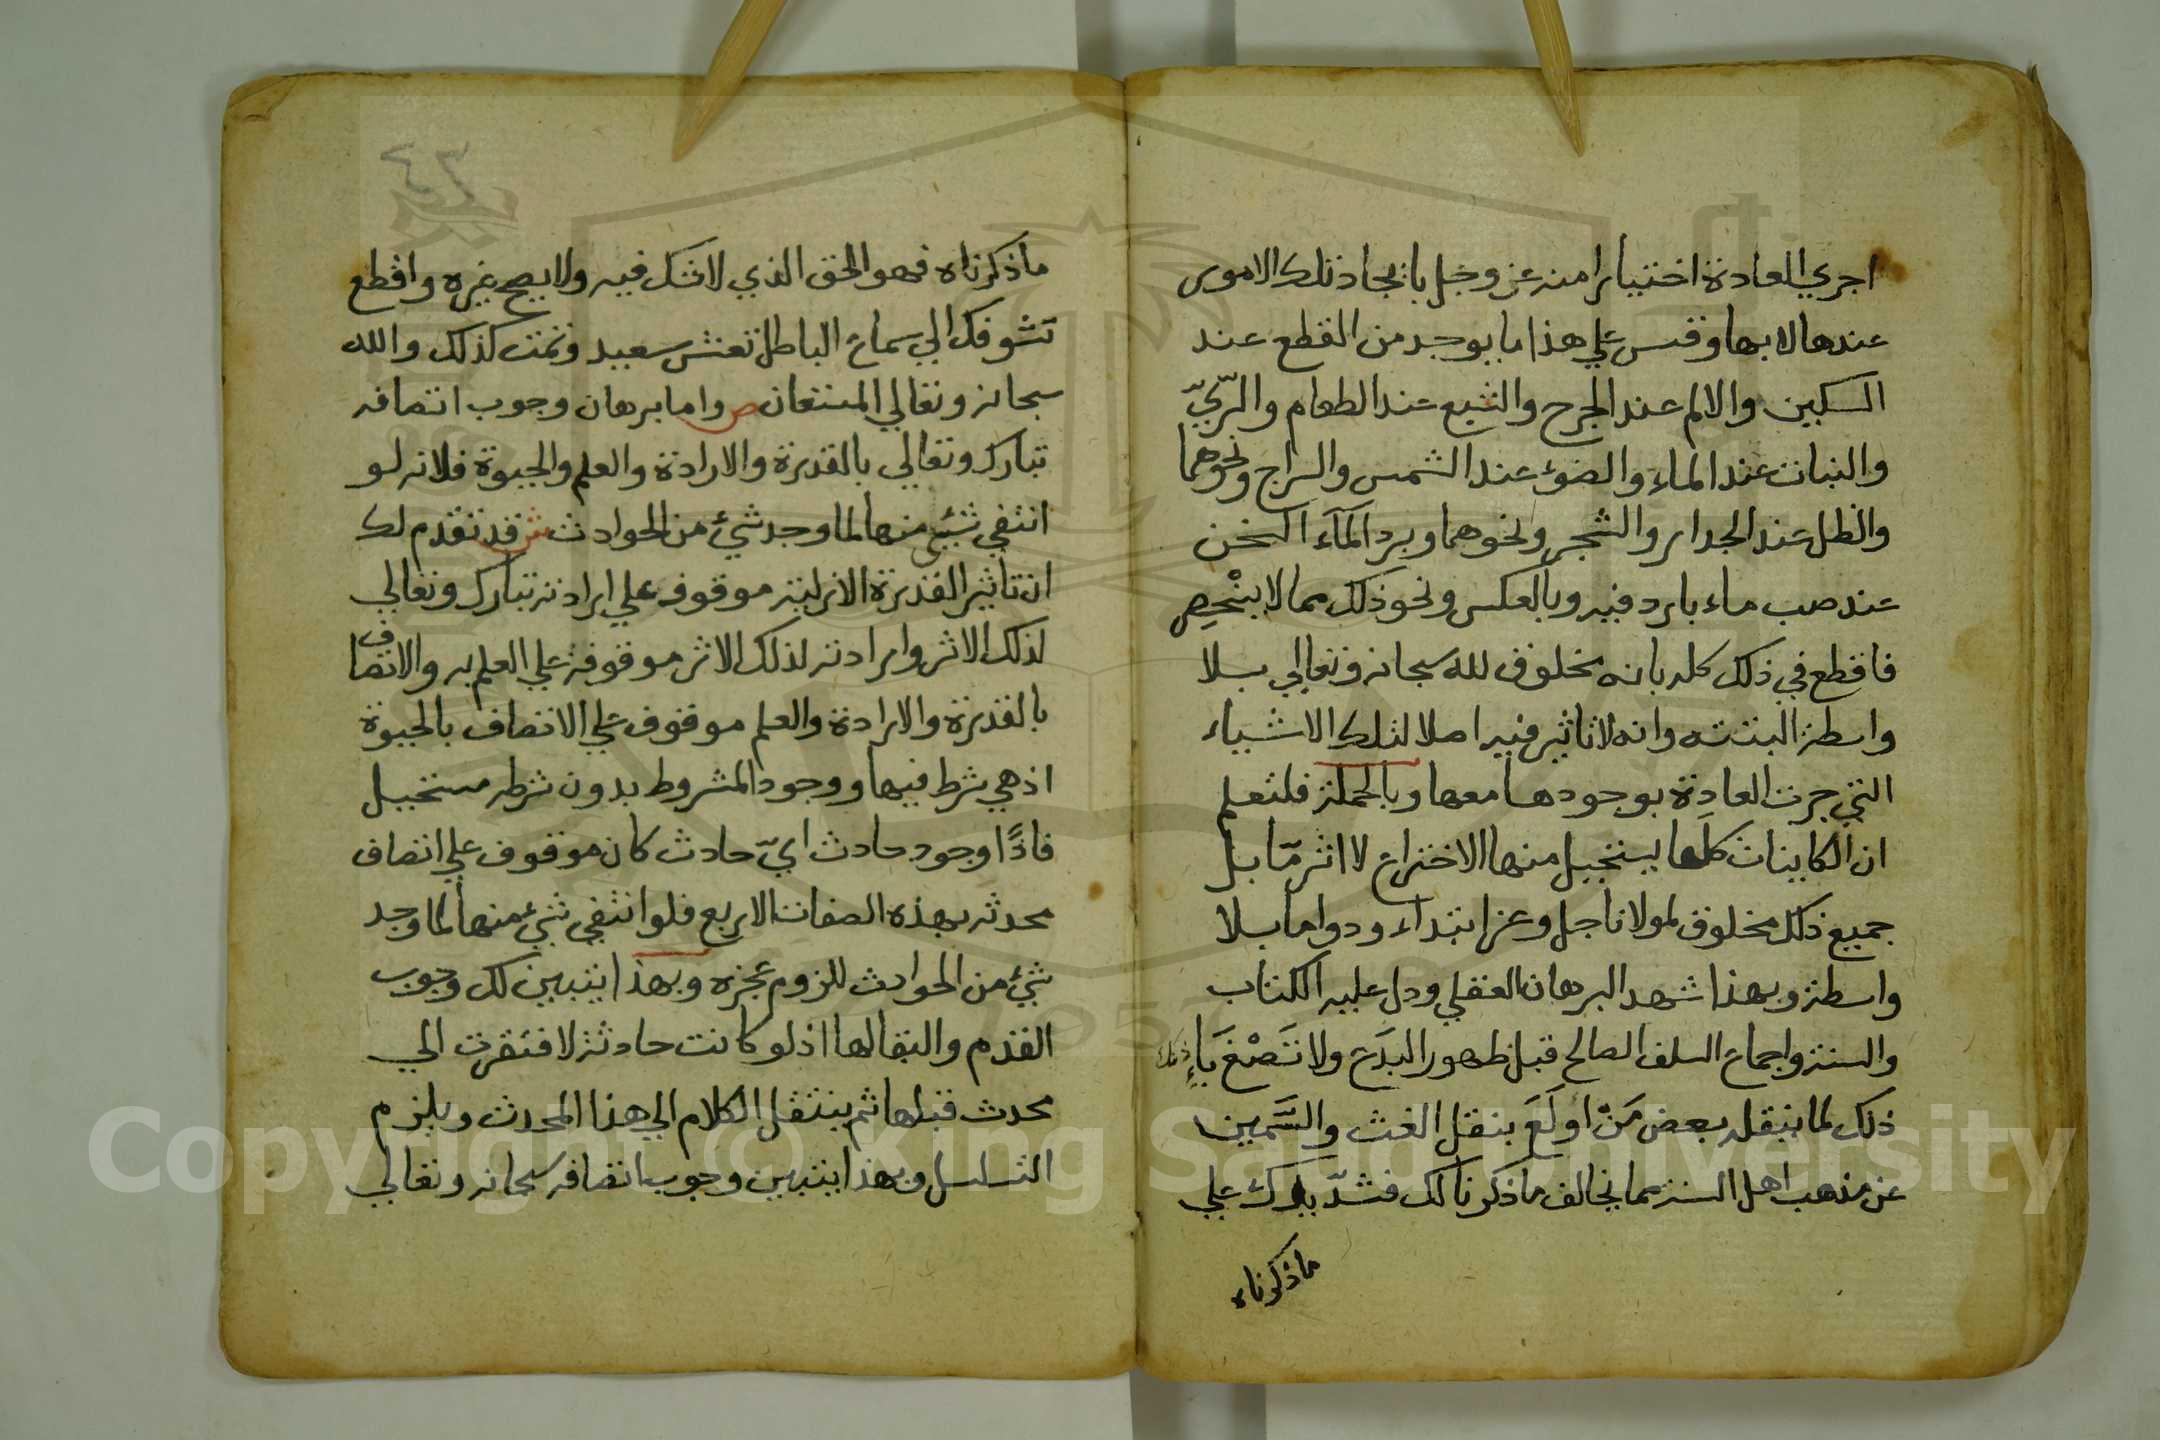 اجري العادة اختيارا منه عز وجل بايجاد تلك الامور
عندها لا بها وقس علي هذا ما يوجد من القطع عند
السكين والالم عند الجرح والشبع عند الطعام والرّيّ
والنبات عند الماء والضوء عند الشمس والسراج ونحوهما
والظل عند الجدار والشجر ونحوهما وبرد المآء السخن
عند صب ماء بارد فيه وبالعكس ونحو ذلك مما لا ينْحصِر
فاقطع في ذلك كله بانه مخلوق لله سبحانه وتعالي بلا
واسطة البتة وانه لا تاثير فيه اصلا لتلك الاشياء
التي جرت العادة بوجودها معها وبالجملة فلتعلم
ان الكاينات كلها يستحيل منها الاختراع لا اثر مّا بل
جميع ذلك مخلوق لمولانا جل وعز ابتداء ودواما بلا
واسطة وبهذا شهد البرهان العقلي ودل عليه الكتاب
والسنة واجماع السلف الصالح قبل ظهور البدَع ولا تَصْغَ بَاءِذنك
ذلك لما ينقله بعض مَنْ اولَعَ بنقل الغث والسَّمين
عن مذهب اهل السنة مما يخالف ما ذكرنا لك فشدّ يدك علي
ما ذكرناه
٤٣
ما ذكرناه فهو الحق الذي لا شك فيه ولا يصح غيره واقطع
تشوفك الي سماع الباطل تعش سعيد وتمت كذلك والله
سبحانه وتعالي المستعان ص واما برهان وجوب اتصافه
تبارك وتعالي بالقدرة والارادة والعلم والحيوة فلانه لو
انتفي شيئ منها لما وجد شيء من الحوادث ش قد تقدم لك
ان تاثير القدرة الازلية موقوف علي ارادته تبارك وتعالي
لذلك الاثر وارادته لذلك الاثر موقوفة علي العلم به والاتصاف
بالقدرة والارادة والعلم موقوف علي الاتصاف بالحيوة
اذ هي شرط فيها ووجود المشروط بدون شرطه مستحيل
فاذًا وجود حادث ايّ حادث كان موقوف علي اتصاف
محدثه بهذه الصفات الاربع فلو انتفي شيء منها لما وجد
شيء من الحوادث للزوم عجزه وبهذا يتبين لك وجوب
القدم والبقا لها اذ لو كانت حادثة لافتقرت الي
محدث قبلها ثم ينتقل الكلام الي هذا المحدث ويلزم
التسلسل وبهذا يتبين وجوب اتصافه سبحانه وتعالي
Copyright © King Saud University
1957